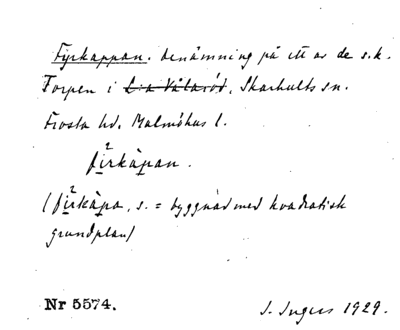 Fyrkappan. benämning på ett av de s.k.
Torpen i L:a Vålaröd, Skarhults sn.
Frosta hd. Malmöhus l.
fi²rkàpan.
(fi²rkàpa, s. = byggnad med kvadratisk
grundplan)
Nr 5574. I. Ingers 1929.